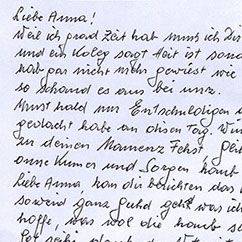 Liebe Anna!
Weil ich grad Zeit hab muss ich Dir
und ein Koleg sagt Heit ist
hab gar nicht mehr gewiest wie
so schaud es aus bei uns.
Musst halt nur Entschuldigen
gedacht habe an disen Tag. Wün
zu deinen Namenz Fehst. Glü
onne Kumer und Sorgen, haub
Liebe Anna, kan dir berichten das
soweid ganz guhd geht was ich
hoffe, was wol die haub sa